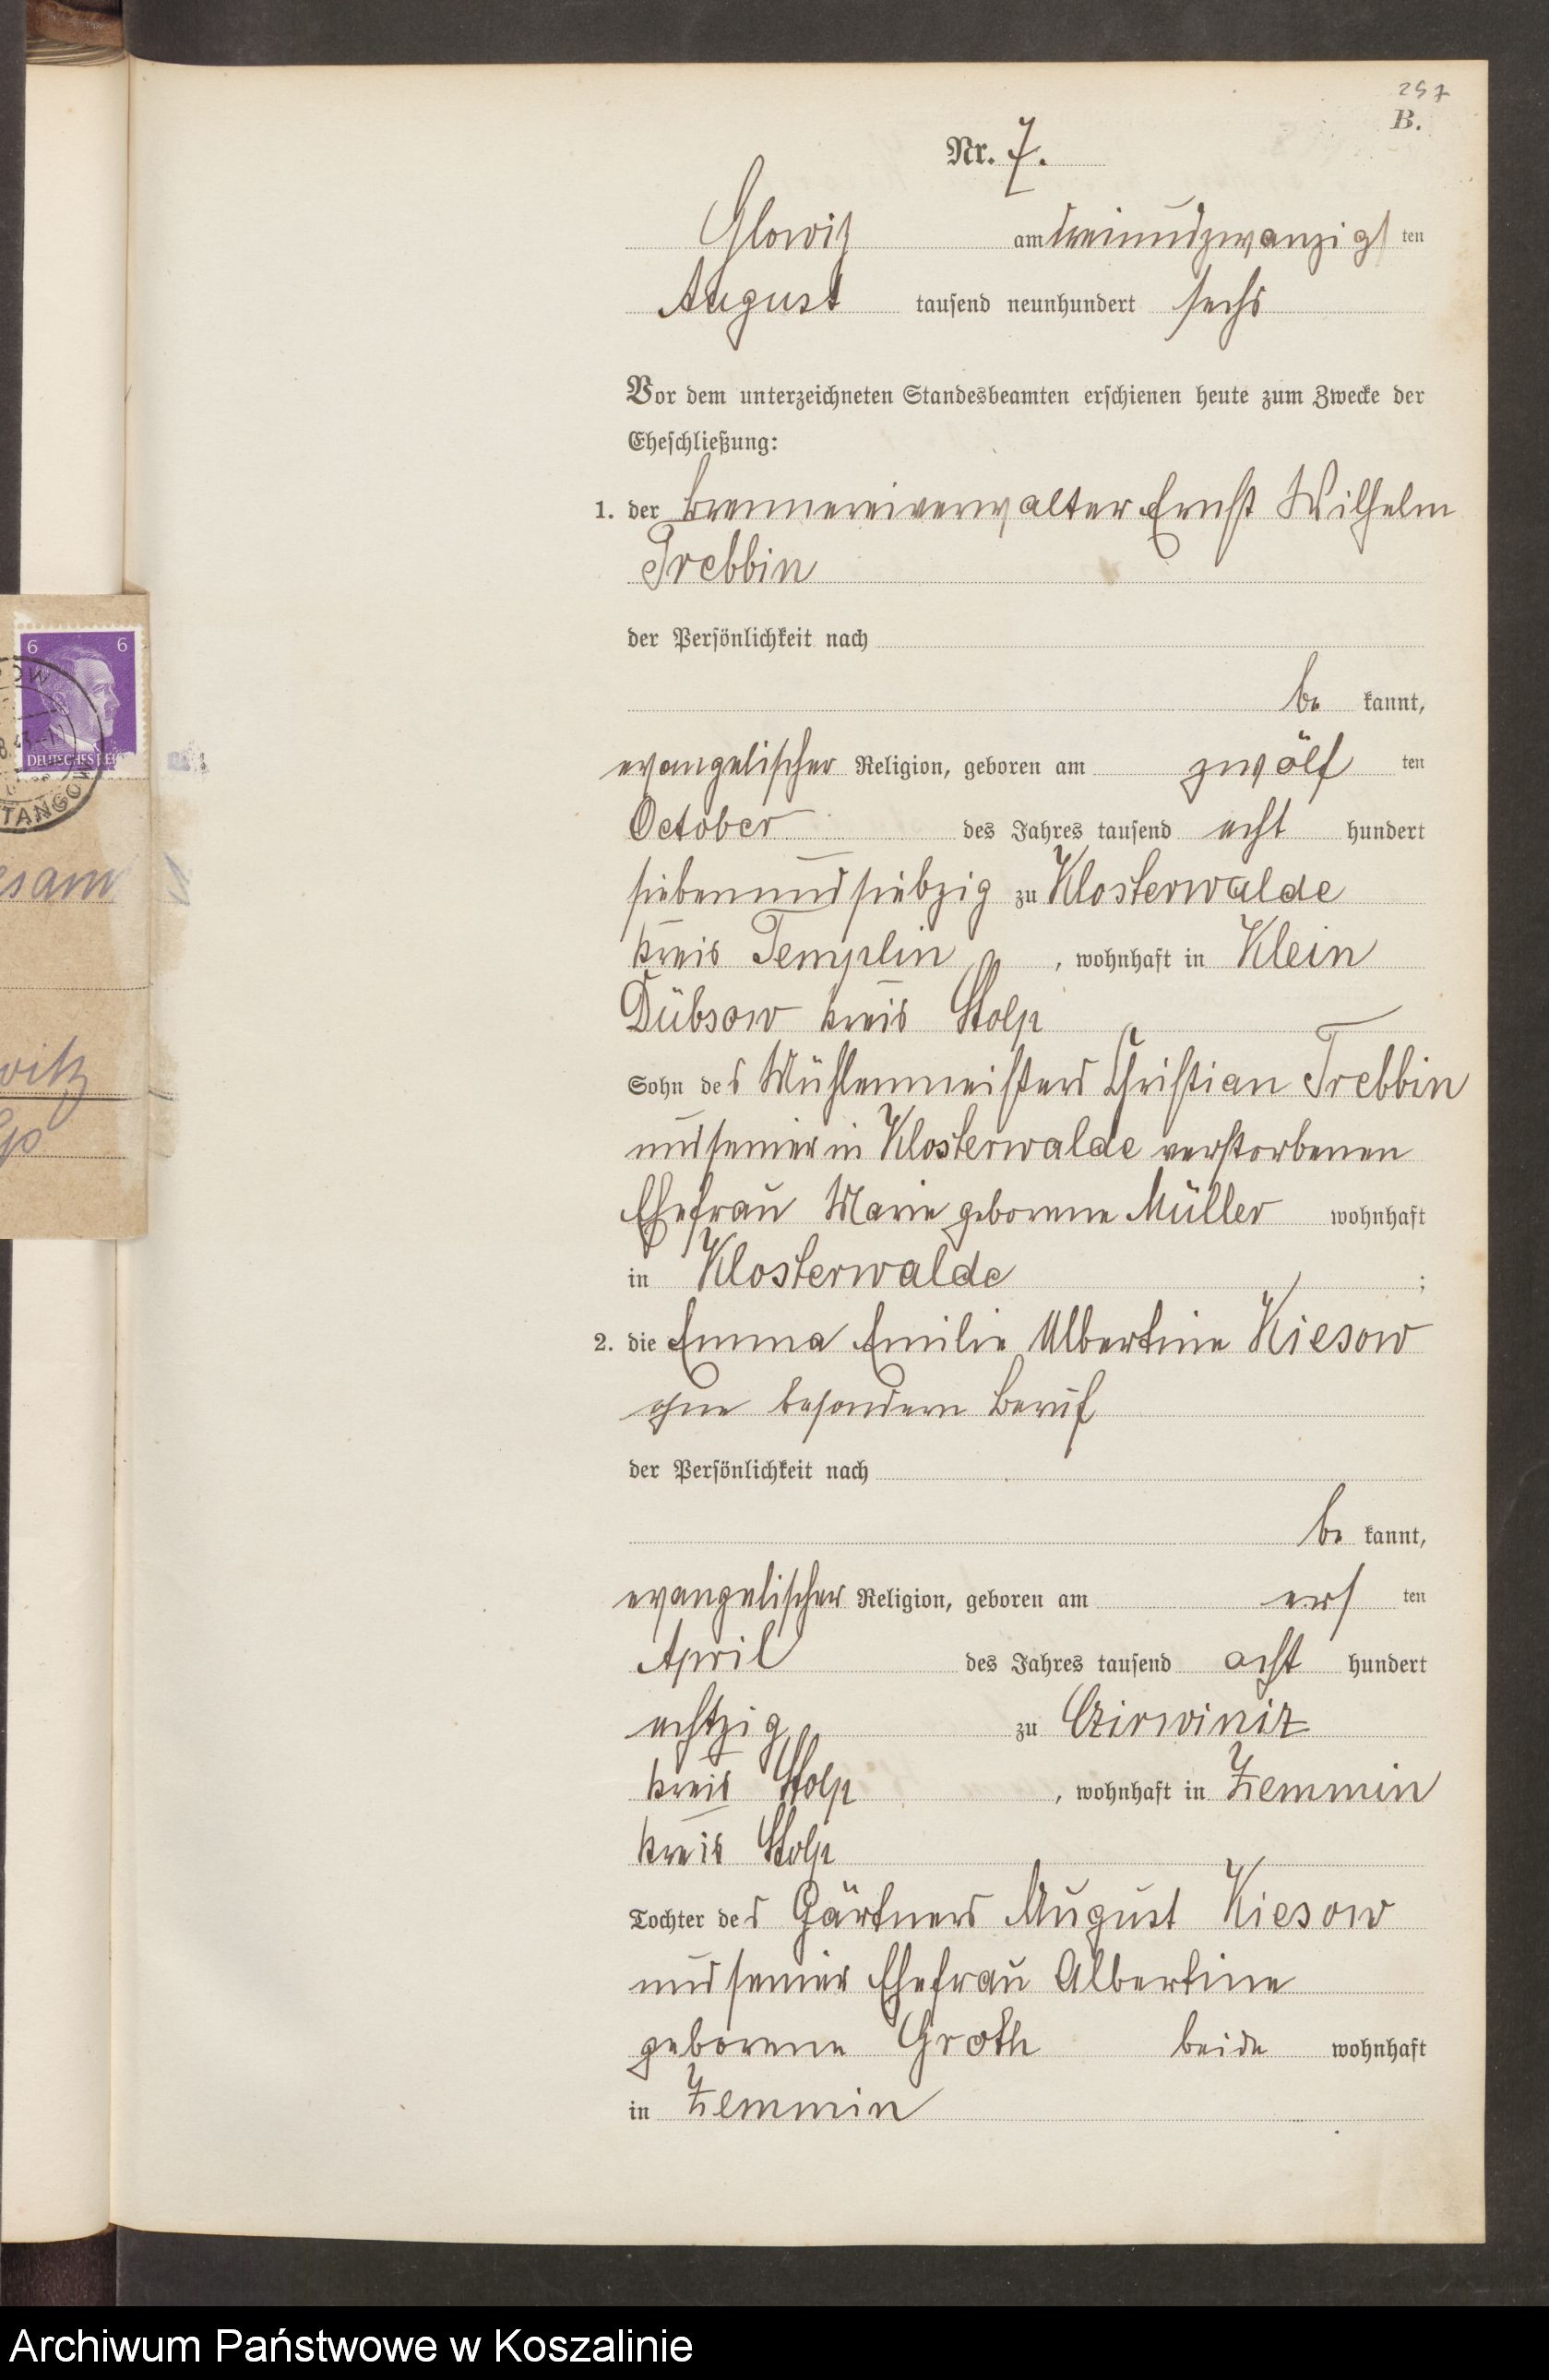 257
B.
Nr. 7.
Glowitz am dreiundzwanzigsten
August tausend neunhundert sechs
Vor dem unterzeichneten Standesbeamten erschienen heute zum Zwecke der
Eheschließung:
1. der Brennereiverwalter Ernst Wilhelm
Trebbin
der Persönlichkeit nach
be kannt,
evangelischer Religion, geboren am zwölf ten
October des Jahres tausend acht hundert
siebenundsiebzig zu Klosterwalde
Kreis Templin, wohnhaft in Klein
Dübsow Kreis Stolp
Sohn des Mühlenmeisters Christian Trebbin
und seiner in Klosterwalde verstorbenen
Ehefrau Marie geborene Müller wohnhaft
in Klosterwalde ;
2. die Emma Emilie Albertine Kiesow
ohne besondern Beruf
der Persönlichkeit nach
be kannt,
evangelischer Religion, geboren am ers ten
April des Jahres tausend acht hundert
achtzig zu Czirwinitz
Kreis Stolp, wohnhaft in Zemmin
Kreis Stolp
Tochter des Gärtners August Kiesow
und seiner Ehefrau Albertine
geborene Groth beide wohnhaft
in Zemmin
6 6
DEUTSCHES REICH
witz
Archiwum Państwowe w Koszalinie